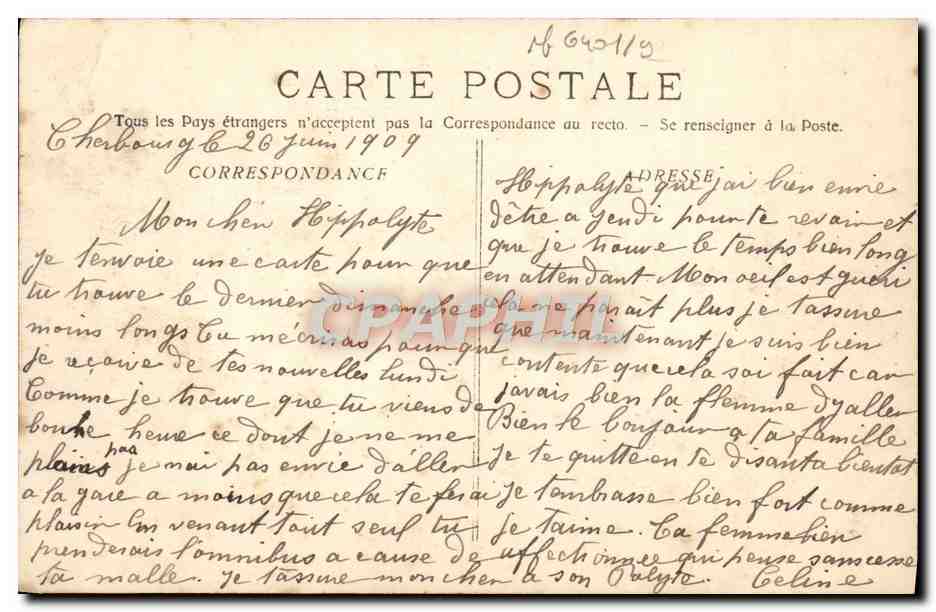 Mb 6401/9
CARTE POSTALE
Tous les Pays étrangers n'acceptent pas la Correspondance au recto. - Se renseigner à la Poste.
Cherbourg le 26 Juin 1909
CORRESPONDANCE
Mon chéri Hippolyte
Je t'envoie une carte pour que
tu trouve le dernier dimanche
moins longs Tu m'écriras pour que
je reçoive de tes nouvelles lundi
Comme je trouve que tu viens de
bonne heure ce dont je ne me
plains pas je n'ai pas envie d'aller
a la gare a moins que cela te ferai
plaisir En venant tout seul tu
prenderais l'omnibus a cause de
ta malle. Je t'assure mon cher
ADRESSE
Hippolyte que j'ai bien envie
d'être a jeudi pour te revoir et
que je trouve le temps bien long
en attendant Mon oeil est guéri
cela ne parait plus je t'assure
que maintenant je suis bien
contente que cela soi fait car
j'avais bien la flemme d'y aller
Bien le bonjour a ta famille
Je te quitte en te disant a bientot
je t'embrasse bien fort comme
je t'aime. Ta femme bien
affectionnée qui pense sans cesse
a son Polyte. Celine
CPAPHIL